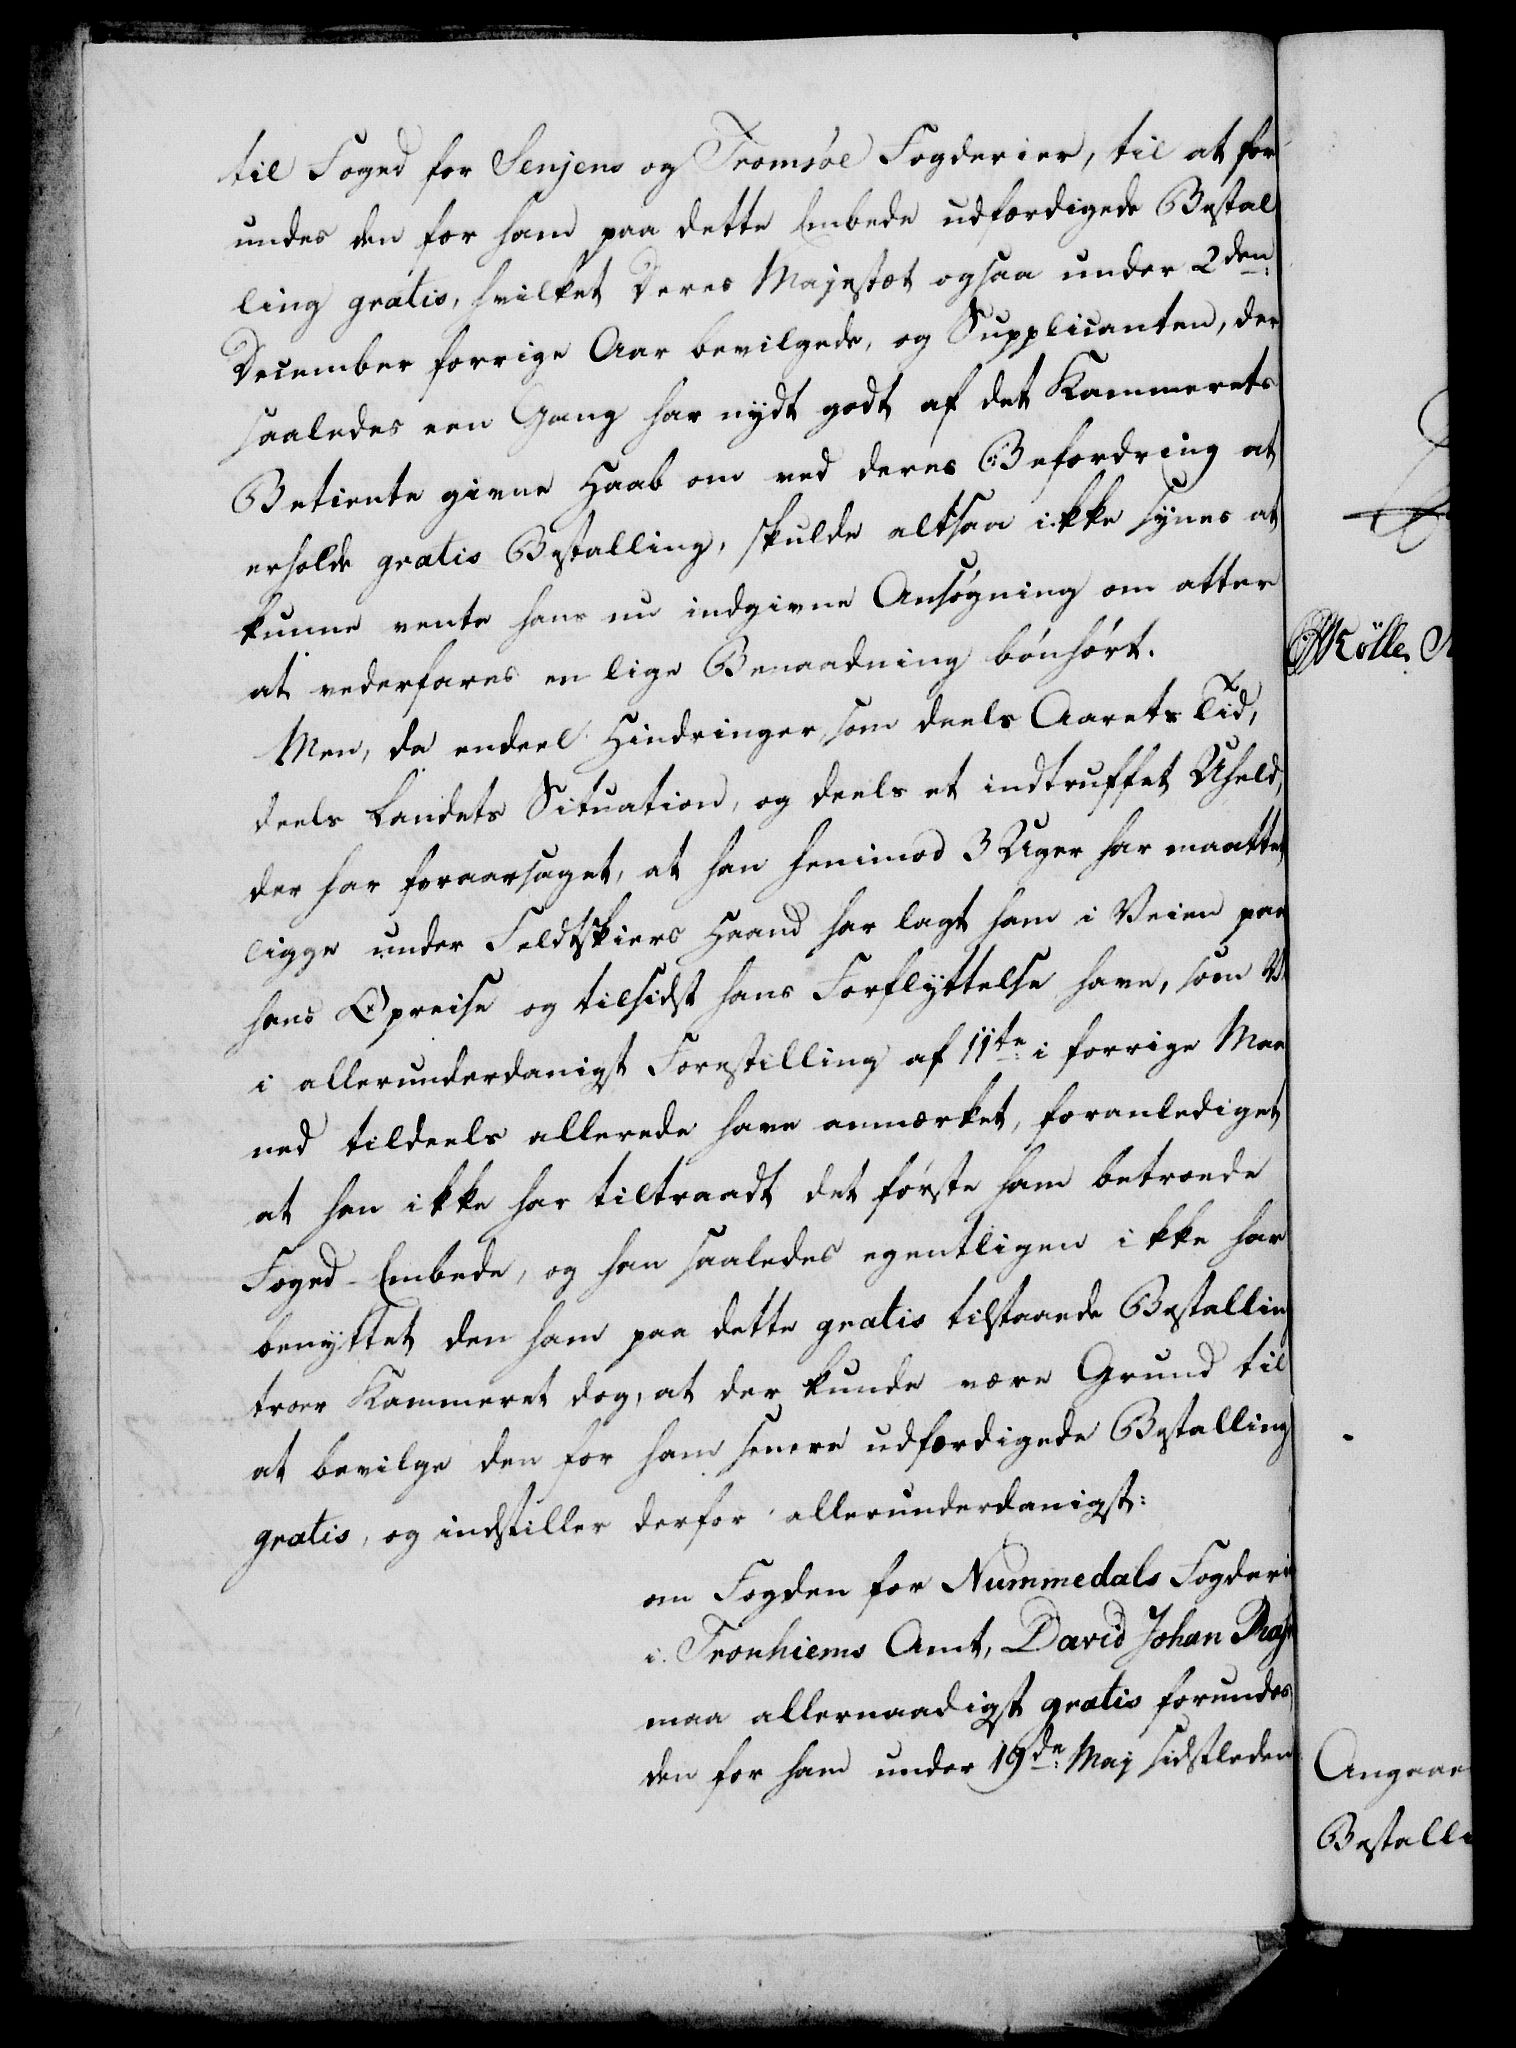 til Foged for Senjens og Tromsøe Fogderier, til at for
undes den for ham paa dette Embede udfærdigede Bestal
ling gratis, hvilket Deres Majestæt ogsaa under 2den
December forrige Aar bevilgede, og Supplicanten, der
saaledes een Gang har nydt godt af det Kammerets
Betiente givne Haab om ved deres Befordring at
erholde gratis Bestalling, skulde altsaa ikke synes at
kunne vente hans nu indgivne Ansøgning om atter
at vederfares en lige Benaadning bønhørt.
Men, da endeel Hindringer, som deels Aarets Tid,
deels Landets Situation, og deels et indtruffet Uheld,
der har foraarsaget, at han henimod 3 Uger har maattet
ligge under Feldtskiers Haand har lagt ham i Veien paa
hans Opreise og tilsidst hans Forflyttelse have, som Vi
i allerunderdanigst Forestilling af 11te i forrige Maa
ned tildeels allerede have anmærket, foranlediget
at han ikke har tiltraadt det første ham betroede
Foged-Embede, og han saaledes egentligen ikke har
benyttet den ham paa dette gratis tilstaaede Bestalling
troer Kammeret dog, at der kunde være Grund til
at bevilge den for ham senere udfærdigede Bestalling
gratis, og indstiller derfor allerunderdanigst:
om Fogden for Nummedals Fogderi
i Tronhiems Amt, David Johan
maa allernaadigst gratis forundes,
den for ham under 19de Maj sidstleden
Mölle
Angaae
Bestalli